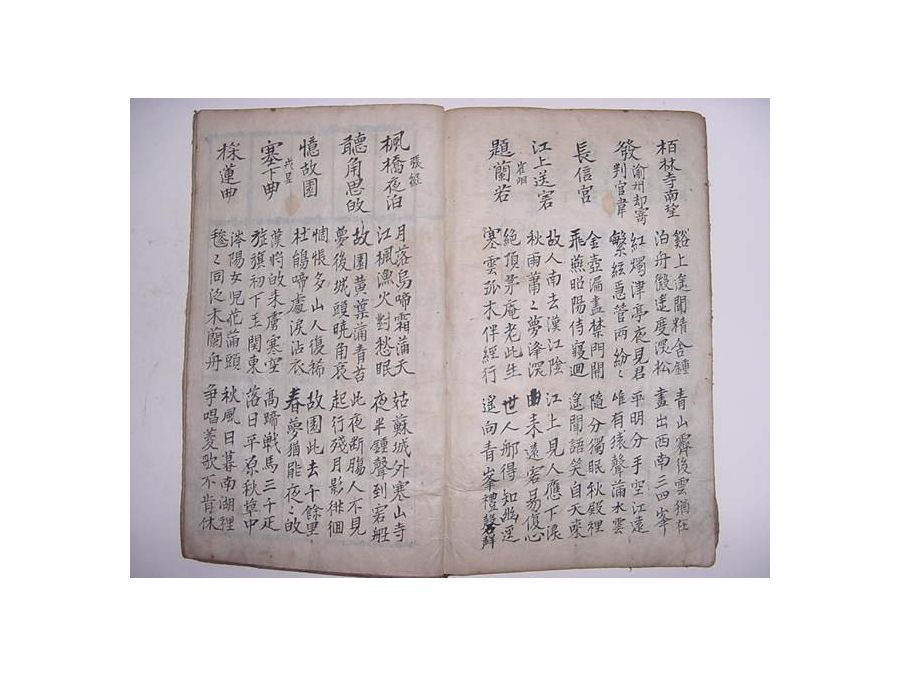 栢林寺南望
谿上遙聞精舍鍾
泊舟微逕度深松
青山霽後雲猶在
畫出西南三四峯
發渝州却寄
判官韋
紅燭津亭夜見君
繁絃急管兩紛々
平明分手空江遠
唯有猿聲滿水雲
長信宮
金壺漏盡禁門開
飛燕昭陽侍寢迴
隨分獨眠秋殿裡
遙聞語笑自天来
江上送客
崔峒
故人南去漢江陰
秋雨蕭々夢澤深
江上見人應下淚
曲来遠客易傷心
題蘭若
絕頂茅庵老此生
寒雲孤木伴經行
世人那得知幽逕
遙向青峯禮磬聲
楓橋夜泊
張継
月落烏啼霜滿天
江楓漁火對愁眠
姑蘇城外寒山寺
夜半鍾聲到客船
聽角思歸
故園黃葉滿青苔
夢後城頭曉角哀
此夜断膓人不見
起行殘月影徘徊
憶故園
惆悵多山人復稀
杜鵑啼處淚沾衣
故園此去千餘里
春夢猶能夜々歸
塞下曲
戎昱
漢將歸来虜塞空
旌旗初下玉關東
高蹄戰馬三千疋
落日平原秋草中
採蓮曲
涔陽女兒花滿頭
毿々同泛木蘭舟
秋風日暮南湖裡
争唱菱歌不肯休